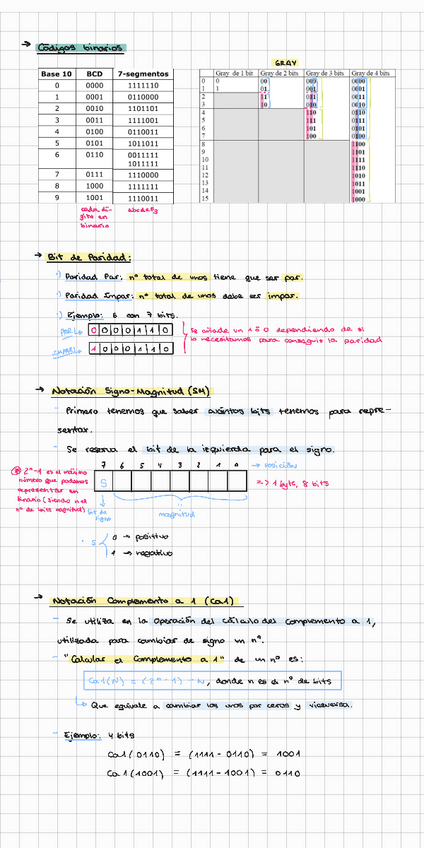 → Códigos binarios
Base 10 BCD 7-segmentos
0 0000 1111110
1 0001 0110000
2 0010 1101101
3 0011 1111001
4 0100 0110011
5 0101 1011011
6 0110 0011111
1011111
7 0111 1110000
8 1000 1111111
9 1001 1110011
cada dí-
gito en
binario
abcdefg
GRAY
Gray de 1 bit Gray de 2 bits Gray de 3 bits Gray de 4 bits
0 0 00 000 0000
1 1 01 001 0001
2 11 011 0011
3 10 010 0010
4 110 0110
5 111 0111
6 101 0101
7 100 0100
8 1100
9 1101
10 1111
11 1110
12 1010
13 1011
14 1001
15 1000
→ Bit de Paridad:
Paridad Par: nº total de unos tiene que ser par.
Paridad Impar: nº total de unos debe ser impar.
Ejemplo: 6 con 7 bits.
PAR 0 0 0 0 1 1 0
IMPAR 1 0 0 0 1 1 0
Se añade un 1 ó 0 dependiendo de si
lo necesitamos para conseguir la paridad
→ Notación Signo-Magnitud (SM)
- Primero tenemos que saber cuántos bits tenemos para repre-
sentar.
- Se reserva el bit de la izquierda para el signo.
7 6 5 4 3 2 1 0 → posición
S
=> 1 byte, 8 bits
2ⁿ-1 es el máximo
número que podemos
representar en
binario (siendo n el
nº de bits magnitud)
bit de
signo
magnitud
S 0 → positivo
1 → negativo
→ Notación Complemento a 1 (Ca1)
- Se utiliza en la operación del cálculo del complemento a 1,
utilizada para cambiar de signo un nº.
- "Calcular el Complemento a 1" de un nº es:
Ca1(N) = (2ⁿ-1) - N, donde n es el nº de bits
Que equivale a cambiar los unos por ceros y viceversa.
- Ejemplo: 4 bits
Ca1(0110) = (1111 - 0110) = 1001
Ca1(1001) = (1111 - 1001) = 0110